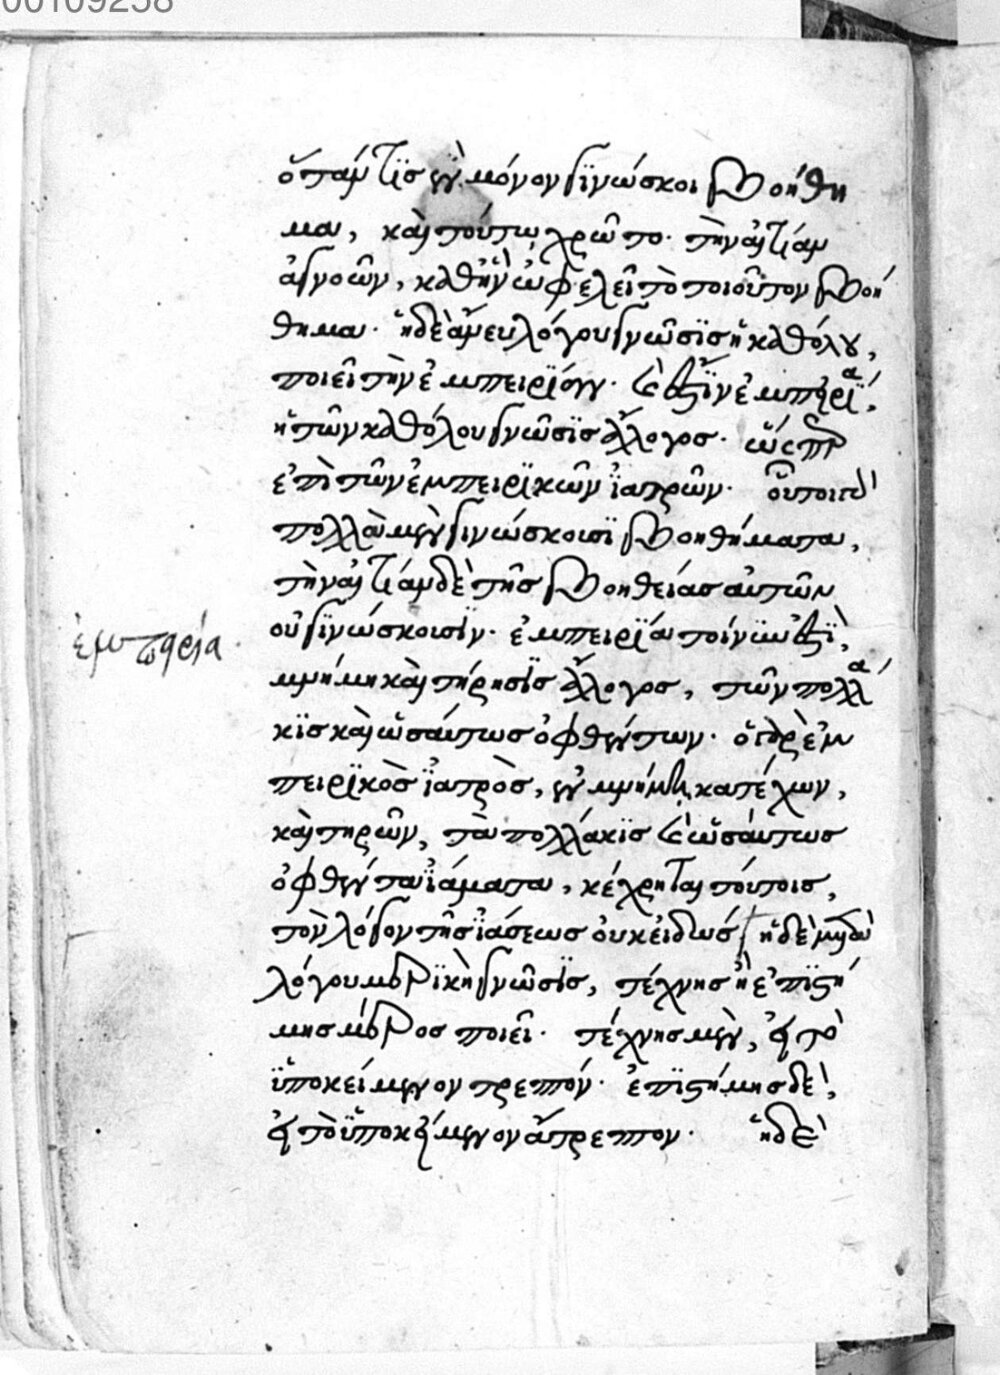 00109258
ὅταν τὶς ἓν μόνον γινώσκοι βοήθη
μα, καὶ τούτω χρῶτο· τὴν αἰτίαν
ἀγνοῶν, καθ' ἣν ὠφελεῖ τὸ τοιοῦτον βοή
θημα· ἡ δὲ ἄνευ λόγου γνῶσις ἡ καθόλου,
ποιεῖ τὴν ἐμπειρίαν· καὶ ἔστιν ἐμπειρία,
ἡ τῶν καθόλου γνῶσις ἄλογος· ὥσπερ
ἐπὶ τῶν ἐμπειρικῶν ἰατρῶν· οὗτοι γὰρ
πολλὰ μὲν γινώσκουσι βοηθήματα,
τὴν αἰτίαν δὲ τῆς βοηθείας αὐτῶν
οὐ γινώσκουσιν· ἐμπειρία τοίνυν ἐστὶ,
ἐμπειρία
μνήμη καὶ τήρησις ἄλογος, τῶν πολλά
κις καὶ ὡσαύτως ὀφθέντων· ὁ γὰρ ἐμ
πειρικὸς ἰατρὸς, ἐν μνήμη κατέχων,
καὶ τηρῶν, τὰ πολλάκις καὶ ὡσαύτως
ὀφθέντα ἰάματα, κέχρηται τούτοις,
τὸν λόγον τῆς ἰάσεως οὐκ εἰδώς ἡ δὲ μετὰ
λόγου μερικὴ γνῶσις, τέχνης ἢ ἐπιστή
μης μέρος ποιεῖ· τέχνης μὲν, εἰ τὸ
ὑποκείμενον τρεπτόν· ἐπιστήμης δὲ,
εἰ τὸ ὑποκείμενον ἄτρεπτον· ἡ δὲ